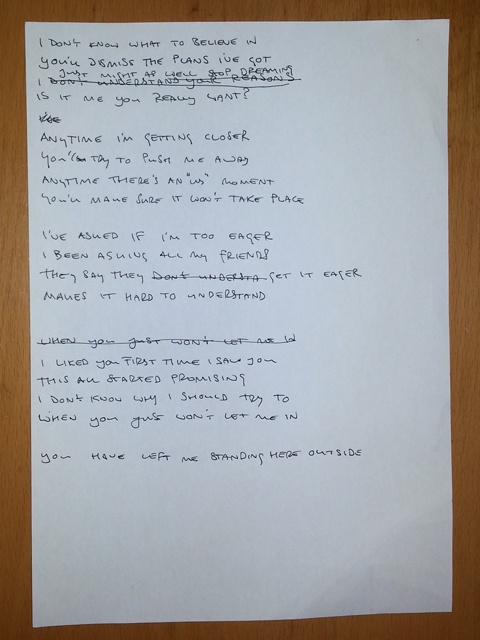 I DON'T KNOW WHAT TO BELIEVE IN
YOU'LL DISMISS THE PLANS I'VE GOT
JUST MIGHT AS WELL STOP DREAMING
I DON'T UNDERSTAND YOUR REASONS
IS IT ME YOU REALLY WANT?
ANYTIME I'M GETTING CLOSER
YOU'LL TRY TO PUSH ME AWAY
ANYTIME THERE'S AN "US" MOMENT
YOU'LL MAKE SURE IT WON'T TAKE PLACE
I'VE ASKED IF I'M TOO EAGER
I BEEN ASKING ALL MY FRIENDS
THEY SAY THEY DON'T UNDERSTA GET IT EAGER
MAKES IT HARD TO UNDERSTAND
WHEN YOU JUST WON'T LET ME IN
I LIKED YOU FIRST TIME I SAW YOU
THIS ALL STARTED PROMISING
I DON'T KNOW WHY I SHOULD TRY TO
WHEN YOU JUST WON'T LET ME IN
YOU HAVE LEFT ME STANDING HERE OUTSIDE